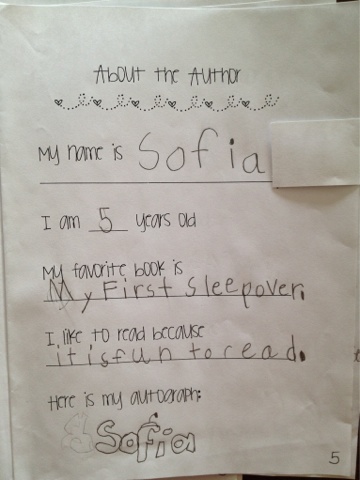 About the Author
My name is Sofia
I am 5 years old
My favorite book is
My First Sleepover.
I like to read because
it is fun to read.
Here is my autograph:
S Sofia
5